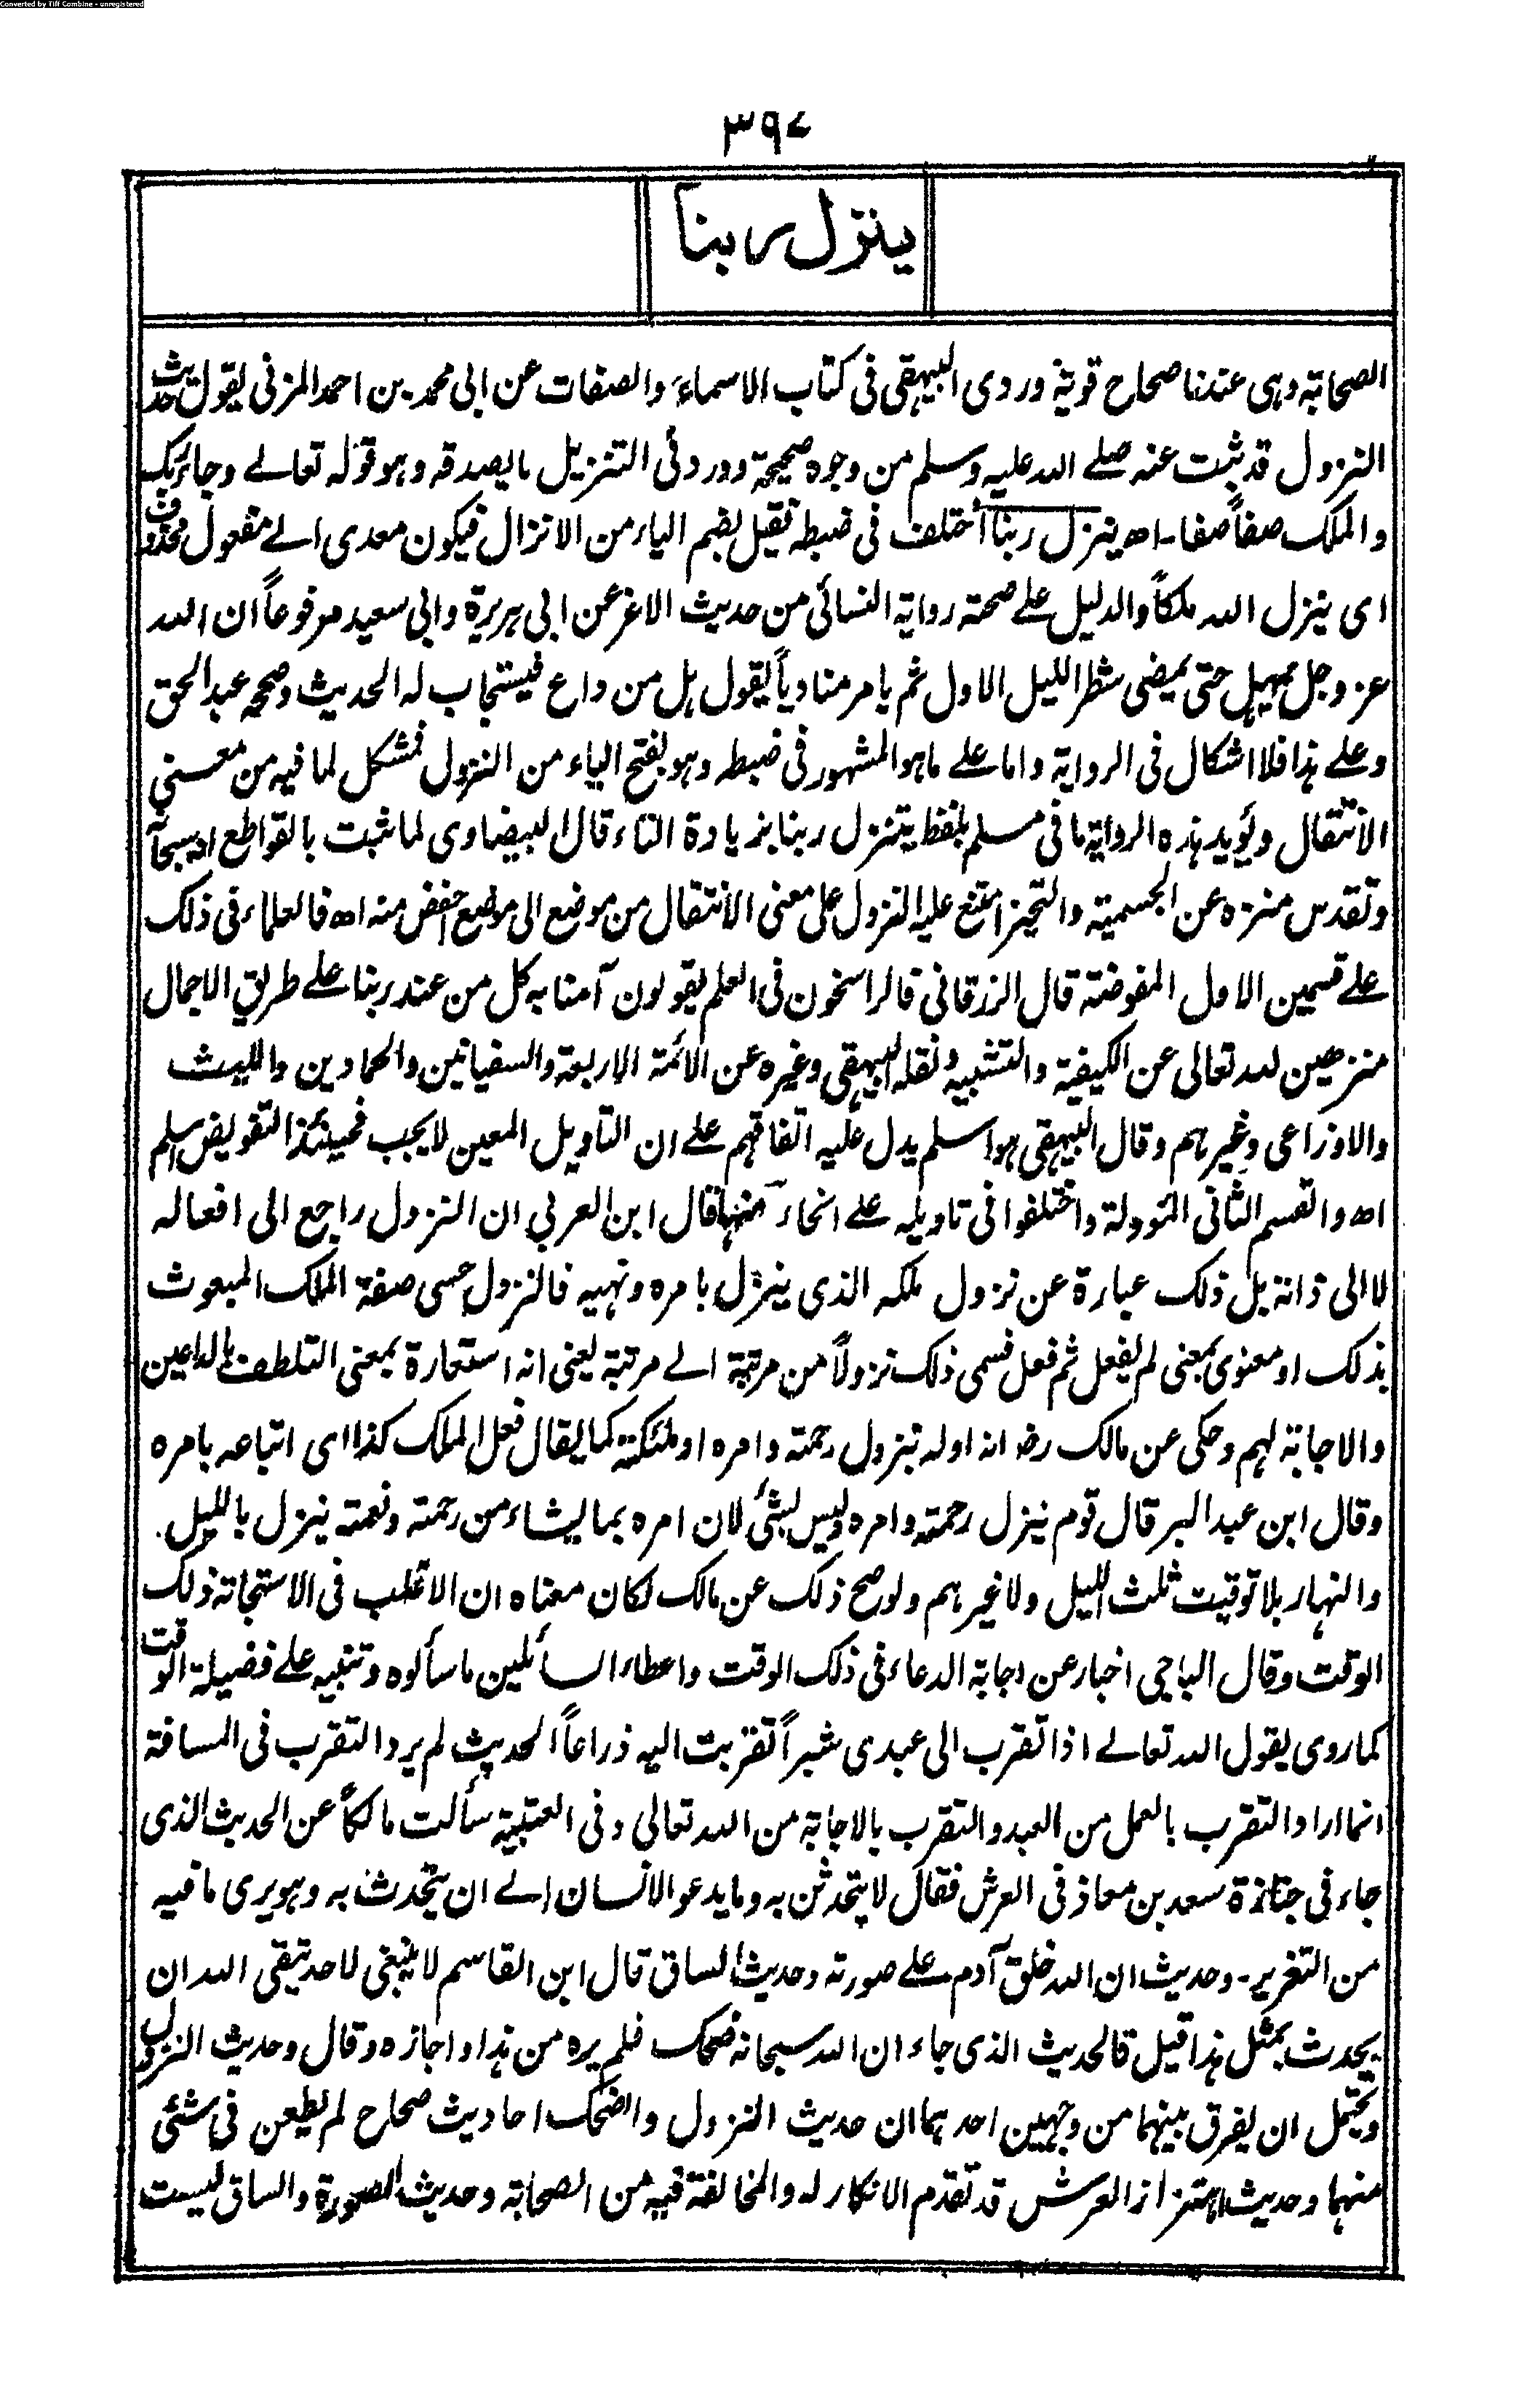 Converted by Tiff Combine - unregistered
٣٩٧
ينزل ربنا
الصحابة وهى عندنا صحاح قوية وروى البيهقى فى كتاب الاسماء والصفات عن ابى محمد بن احمد المزنى يقول حديث
النزول قد ثبت عنه صلے الله عليه وسلم من وجوه صحيحة وورد فى التنزيل ما يصدقه وهو قوله تعالے وجاء ربك
والملك صفاً صفا ـ اھ ينزل ربنا اختلف فى ضبطه فقيل بضم الياء من الانزال فيكون معدى الے مفعول محذوف
اى ينزل الله ملكاً والدليل علے صحته رواية النسائى من حديث الاغر عن ابى هريرة وابى سعيد مرفوعاً ان الله
عز وجل يمهل حتى يمضى شطر الليل الاول ثم يامر مناديا يقول هل من داع فيستجاب له الحديث وصححه عبد الحق
وعلے هذا فلا اشكال فى الرواية واما علے ما هو المشهور فى ضبطه وهو بفتح الياء من النزول فمشكل لما فيه من معنى
الانتقال ويؤيد هذه الرواية ما فى مسلم بلفظ يتنزل ربنا بزيادة التاء قال البيضاوى لما ثبت بالقواطع انه سبحانه
وتقدس منزه عن الجسمية والتحيز امتنع عليه النزول على معنى الانتقال من موضع الى موضع اخفض منه اھ فالعلماء فى ذلك
علے قسمين الاول المفوضة قال الزرقانى فالراسخون فى العلم يقولون آمنا به كل من عند ربنا علے طريق الاجمال
منزهين لله تعالى عن الكيفية والتشبيه ونقله البيهقى وغيره عن الائمة الاربعة والسفيانين والحمادين والليث
والاوزاعى وغيرهم وقال البيهقى هو اسلم يدل عليه اتفاقهم علے ان التاويل المعين لا يجب فحينئذ التفويض اسلم
اھ والقسم الثانى المؤولة واختلفوا فى تاويله علے انحاء منها قال ابن العربى ان النزول راجع الى افعاله
لا الى ذاته بل ذلك عبارة عن نزول ملكه الذى ينزل بامره ونهيه فالنزول حسى صفة الملك المبعوث
بذلك او معنوى بمعنى لم يفعل ثم فعل فسمى ذلك نزولاً من مرتبة الے مرتبة يعنى انه استعارة بمعنى التلطف بالداعين
والاجابة لهم وحكى عن مالك رضـ انه اوله بنزول رحمته وامره او ملئكته كما يقال فعل الملك كذا اى اتباعه بامره
وقال ابن عبد البر قال قوم ينزل رحمته وامره وليس بشئ لان امره بما يشاء من رحمته ونعمته ينزل بالليل
والنهار بلا توقيت ثلث الليل ولا غيرهم ولو صح ذلك عن مالك لكان معناه ان الاغلب فى الاستجابة ذلك
الوقت وقال الباجى اخبار عن اجابة الدعاء فى ذلك الوقت واعطاء السائلين ما سألوه وتنبيه علے فضيلة الوقت
كما روى يقول الله تعالے اذا تقرب الى عبدى شبراً تقربت اليه ذراعاً الحديث لم يرد التقرب فى المسافة
انما اراد التقرب بالعمل من العبد والتقرب بالاجابة من الله تعالى وفى العتبية سألت مالكاً عن الحديث الذى
جاء فى جنازة سعد بن معاذ فى العرش فقال لا يتحدثن به وما يدعو الانسان الے ان يتحدث به وهو يرى ما فيه
من التغرير ـ وحديث ان الله خلق آدم علے صورته وحديث الساق قال ابن القاسم لا ينبغى لاحد يتقى الله ان
يحدث بمثل هذا قيل فالحديث الذى جاء ان الله سبحانه ضحك فلم يره من هذا واجازه وقال وحديث النزول
ويحتمل ان يفرق بينهما من وجهين احدهما ان حديث النزول والضحك احاديث صحاح لم يطعن فى شئى
منهما وحديث اهتزاز العرش قد تقدم الانكار له والمخالفة فيه من الصحابة وحديث الصورة والساق ليست